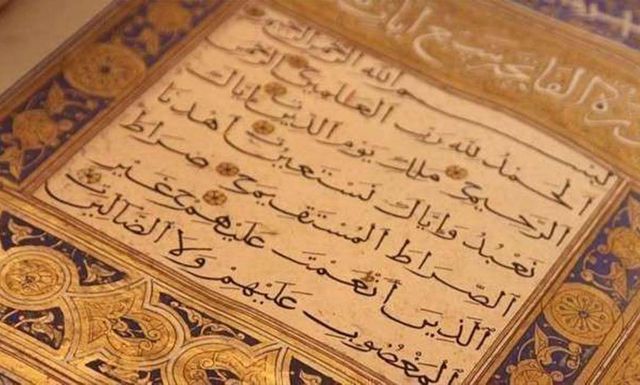 ورة الفاتحة سبع آيات
بسم الله الرحمن الرحيم
الحمد لله رب العالمين الرحمن
الرحيم ملك يوم الدين إياك
نعبد وإياك نستعين اهدنا
الصراط المستقيم صراط
الذين أنعمت عليهم غير
المغضوب عليهم ولا الضالين